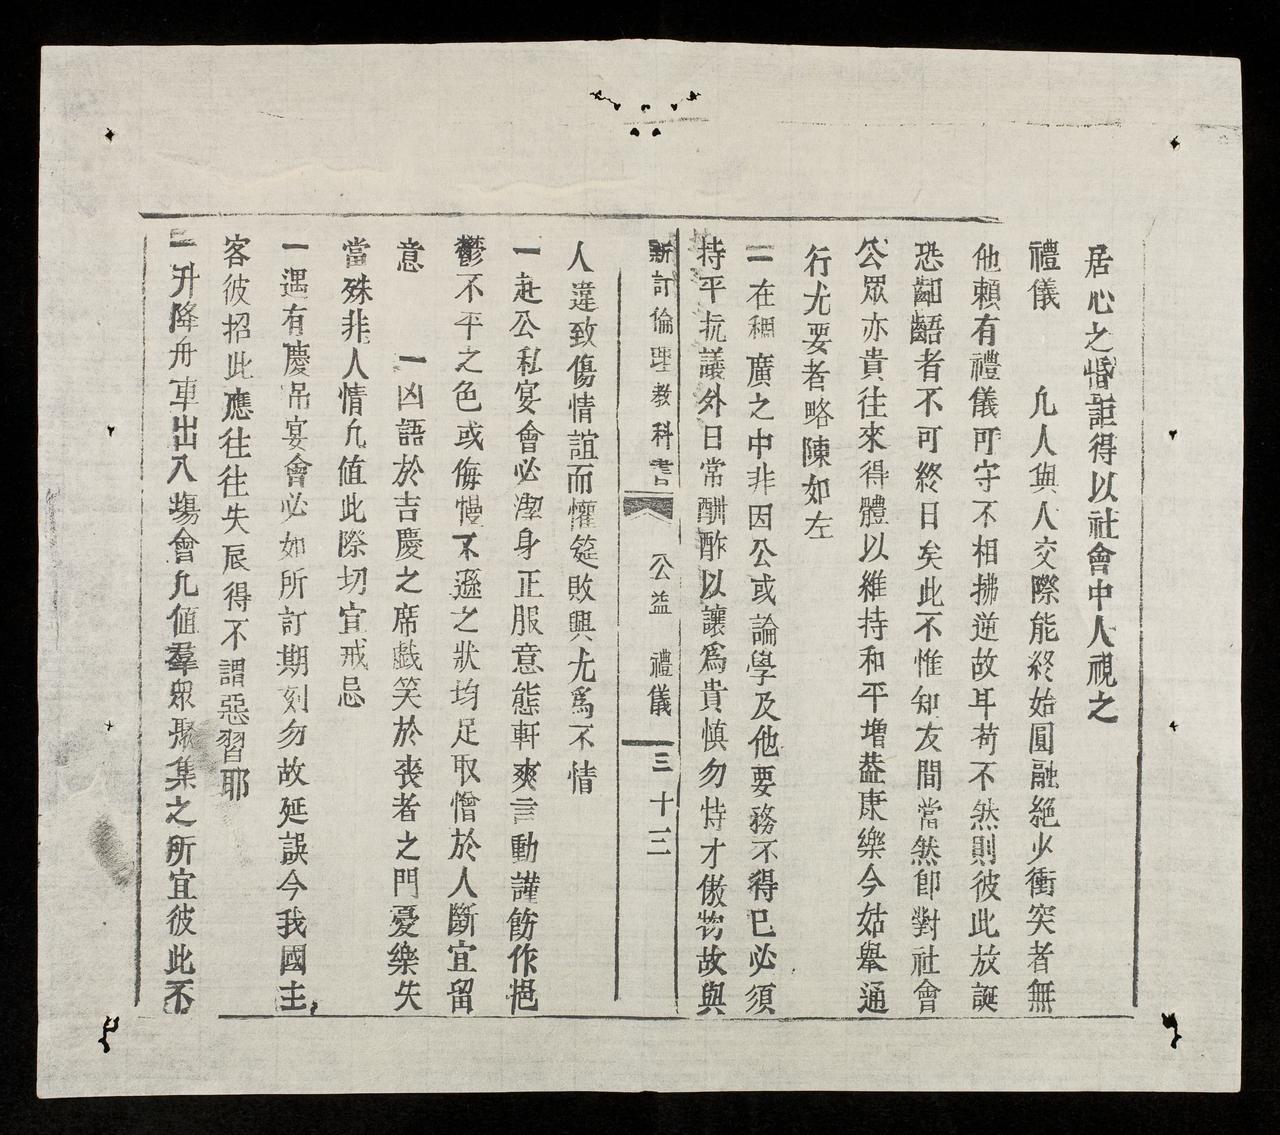 居心之惛詎得以社會中人視之
禮儀　凢人與人交際能終始圓融絕少衝突者無
他賴有禮儀可守不相拂逆故耳苟不然則彼此放誕
恐齟齬者不可終日矣此不惟知友間當然卽對社會
公眾亦貴往來得體以維持和平增益康樂今姑舉通
行尤要者略陳如左
一在稠廣之中非因公或論學及他要務不得已必須
持平抗議外日常酬酢以讓爲貴慎勿恃才傲物故與
新訂倫理教科書　公益　禮儀　三十三
人違致傷情誼而懽筵敗興尤爲不情
一赴公私宴會必潔身正服意態軒爽言動謹飭作挹
鬱不平之色或侮慢不遜之狀均足取憎於人斷宜留
意　一凶語於吉慶之席戲笑於喪者之門憂樂失
當殊非人情凢值此際切宜戒忌
一遇有慶吊宴會必如所訂期刻勿故延誤今我國主
客彼招此應往往失辰得不謂惡習耶
一升降舟車出入塲會凢值羣眾聚集之所宜彼此不